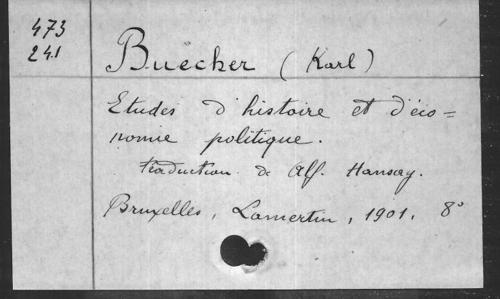 473
241
Buecher (Karl)
Etudes d'histoire et d'éco=
nomie politique.
traduction de Alf. Hansay.
Bruxelles, Lamertin, 1901. 8°